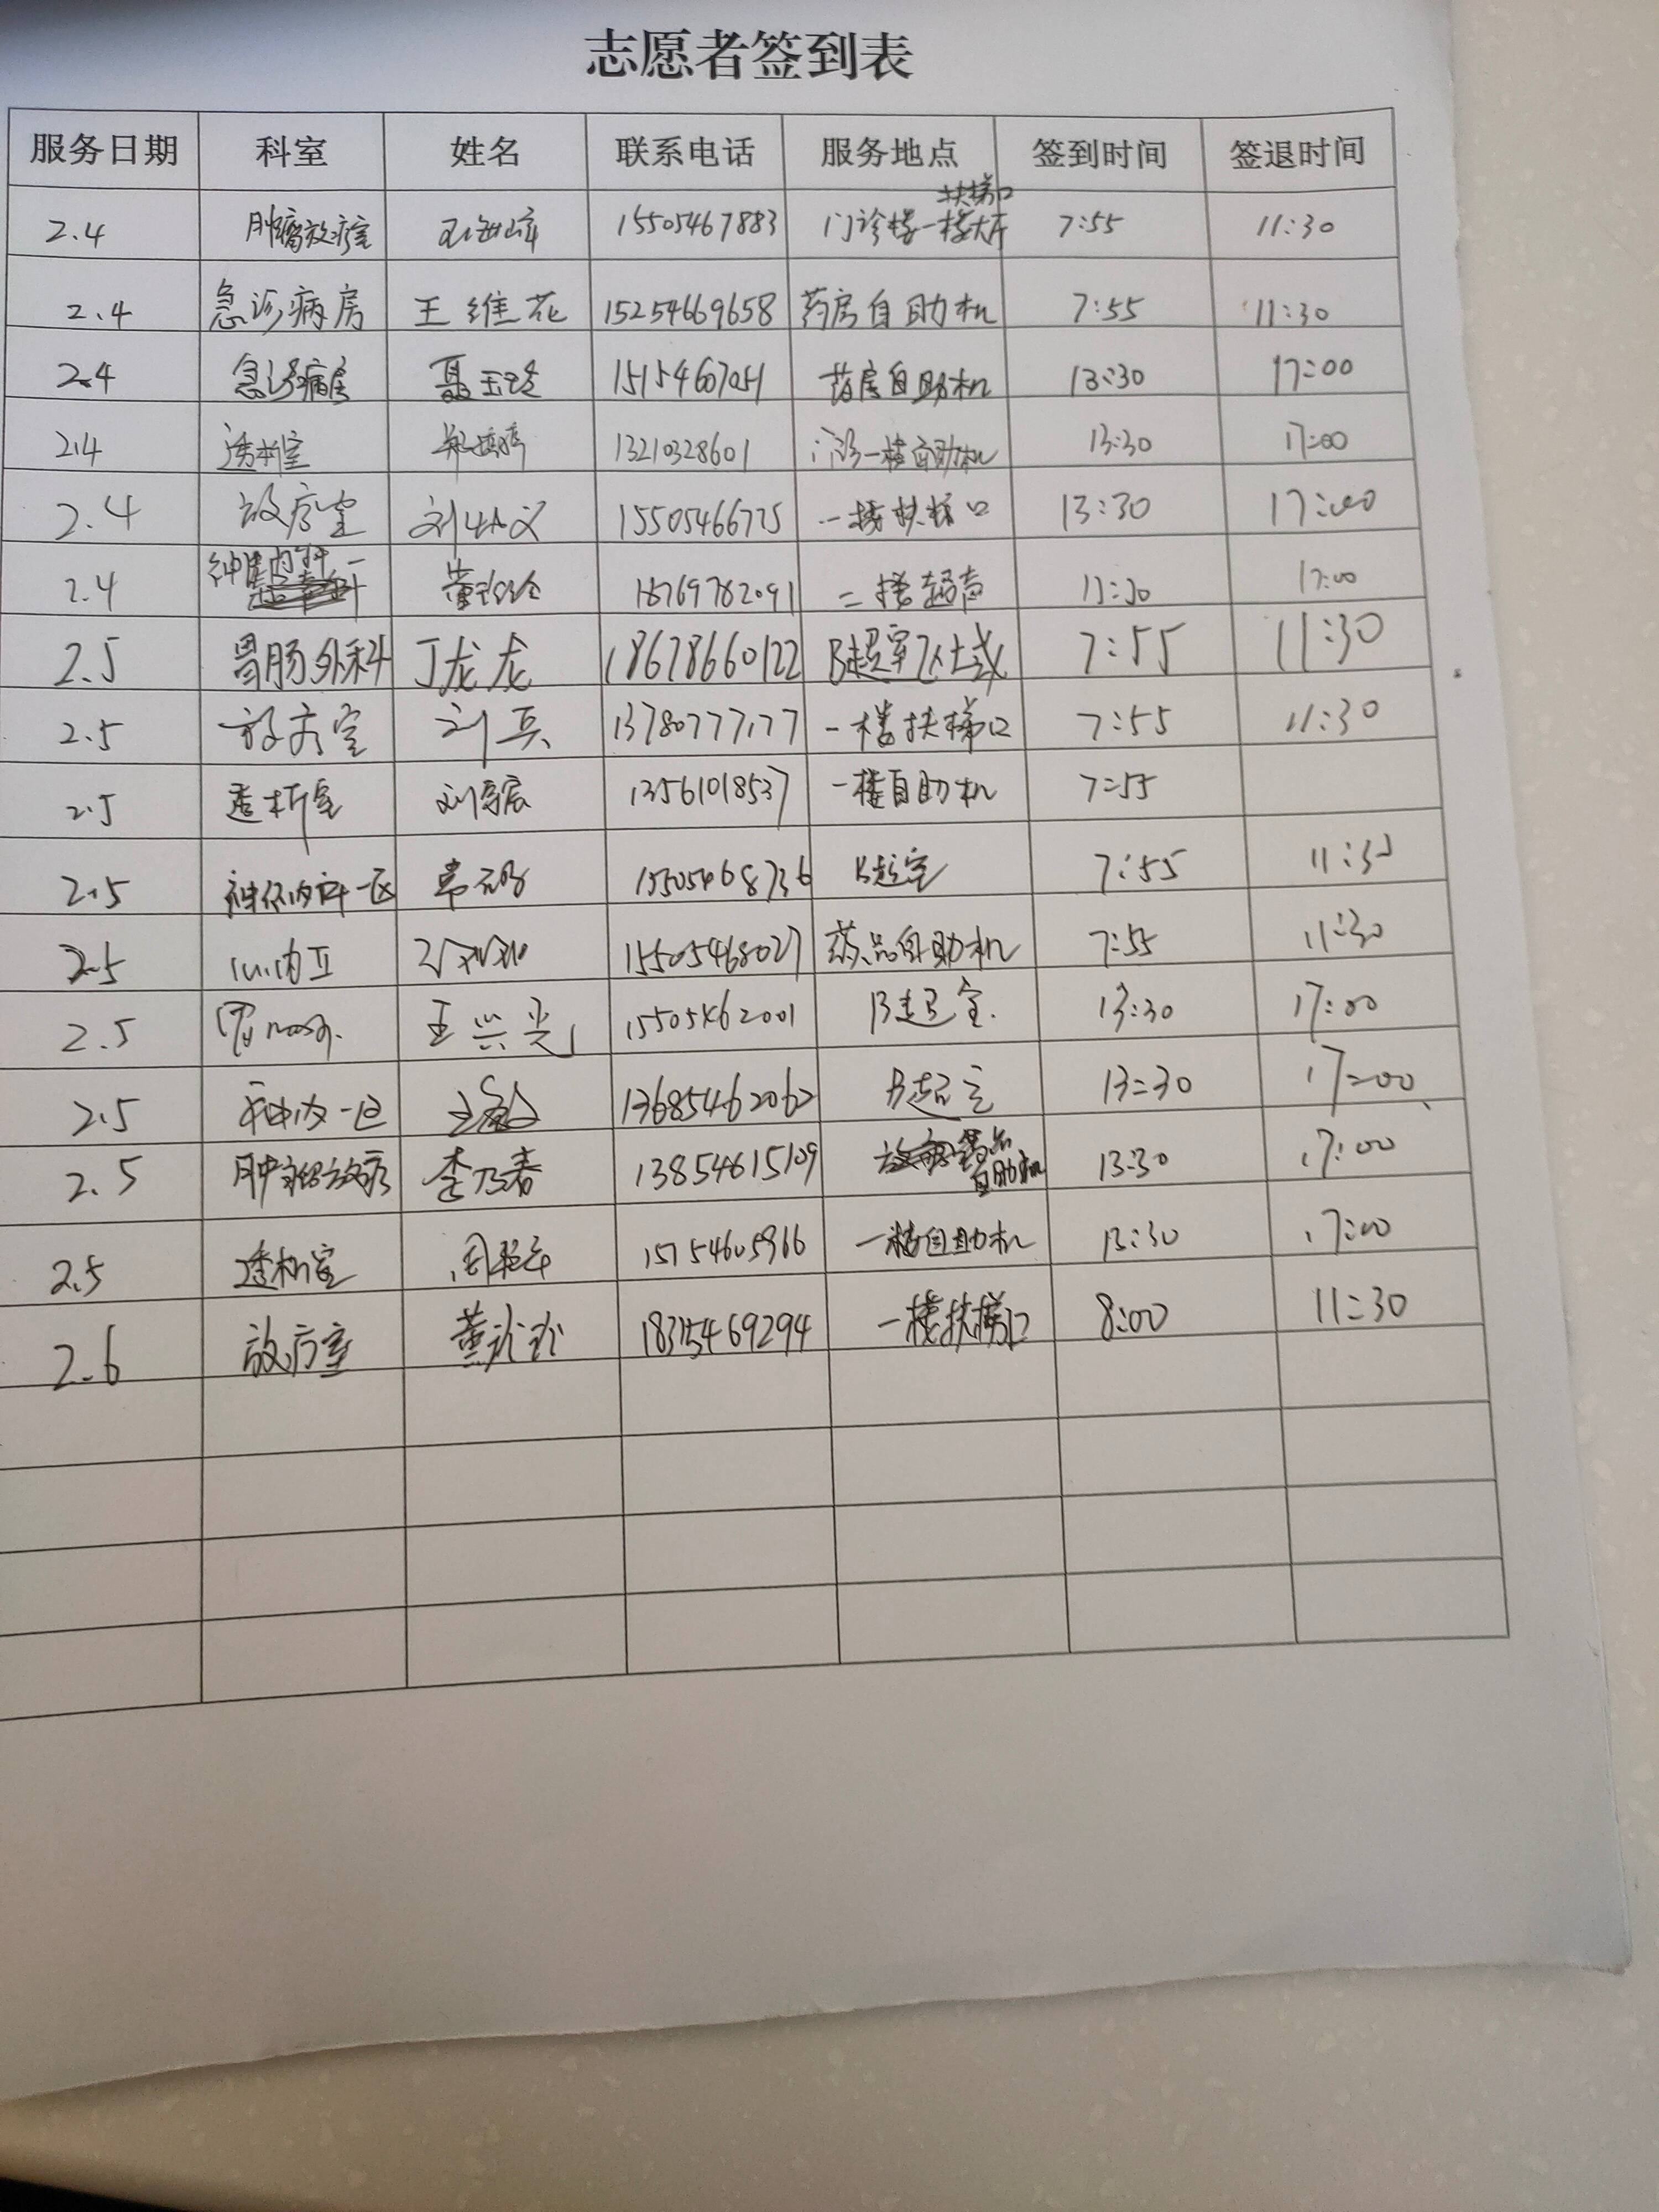 志愿者签到表
服务日期 科室 姓名 联系电话 服务地点 签到时间 签退时间
2.4 肿瘤放疗室 15505467883 门诊楼一楼大厅扶梯口 7:55 11:30
2.4 急诊病房 王维花 15254669658 药房自助机 7:55 11:30
2.4 急诊病房 聂玉玲 15154667051 药房自助机 13:30 17:00
2.4 透析室 13210328601 门诊一楼自助机 13:30 17:00
2.4 放疗室 刘 15505466775 一楼扶梯口 13:30 17:00
2.4 神经内科一 董 18769782091 二楼超声 13:30 17:00
2.5 胃肠外科 丁龙龙 18678660122 B超室 7:55 11:30
2.5 放疗室 刘兵 13780777177 一楼扶梯口 7:55 11:30
2.5 透析室 刘 13561018537 一楼自助机 7:55
2.5 神经内科一区 15505468736 B超室 7:55 11:30
2.5 心内II 15505468027 药品自助机 7:55 11:30
2.5 王兴光 15505462001 B超室. 13:30 17:00
2.5 神内一区 王 13685462062 B超室 13:30 17:00
2.5 肿瘤放疗 李乃春 13854615109 药品自助机 13:30 17:00
2.5 透析室 周 15754605966 一楼自助机 13:30 17:00
2.6 放疗室 董 18315469294 一楼扶梯口 8:00 11:30